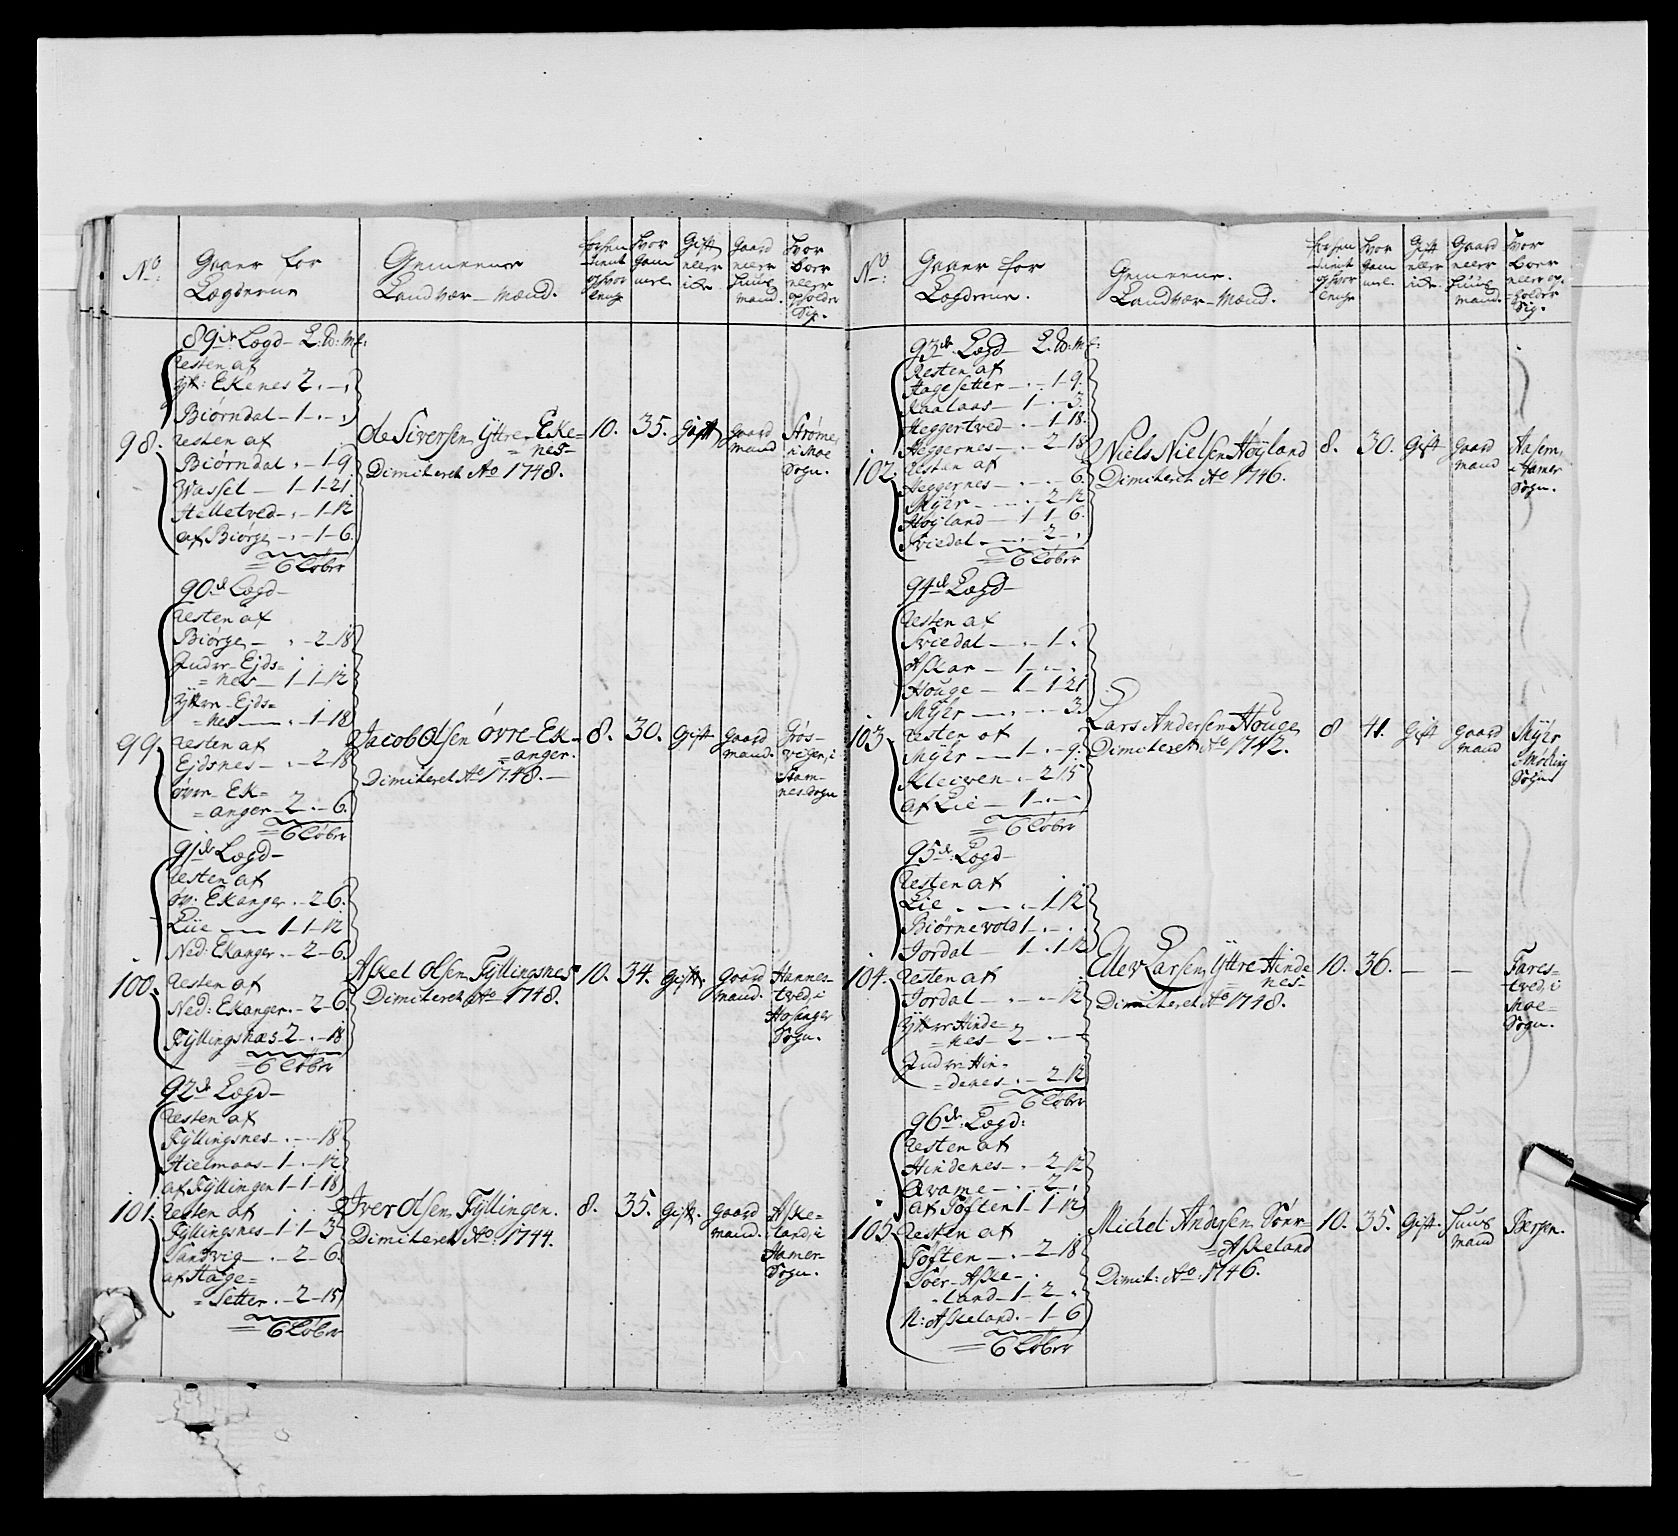 No:
Gaarer for
Lægderne
Gemeene
Landvær-Mænd.
Hvor
Gam
mel
Gift
eller
ikke
Gaard
eller
Huus
mand.
Hvor
boer
eller
opholder
Sig.
89de Lægd - L: P: Mk:
Resten af
Yt: Ekenes 2.-,
Biørndal - 1 -.-,
98.
Resten af
Biørndal . - 1-9
Wassel - 1-1-21
Helletved - . - 1-12
af Biørge - . - 1-6.
= 6 Løber
Ole Siversen Yttre Eke=
=nes-
Dimiteret Ao 1748.
10. 35. Gift Gaard
mand
Strøme
i Moe
Sogn.
90de Lægd -
Resten af
Biørge - . - 2-18
Indre Ejds=
=nes - 1-1-12
Yttre Ejds=
=nes - . - 1-18
99.
Resten af
Ejdsnes - . - 2-18
øvre Ek=
=anger - 2 . - 6.
= 6 Løber
Jacob Olsen Øvre Ek=
=anger.
Dimiteret Ao 1748. -
8. 30. Gift Gaard
mand.
vigen, i
Ham=
nes Sogn
91de Lægd -
Resten af
øv: Ekanger . - 2-6.
Liie - 1-1-12
Ned: Ekanger . - 2-6.
100.
Resten af
Ned: Ekanger . - 2-6.
Fyllingsnæs - 2 - . - 18
= 6 Løber
Askel Olsen Fyllingsnes
Dimiteret Ao 1748.
10. 34. Gift. Gaard
mand.
Hannes=
tved, i
Hosanger
Sogn.
92de Lægd -
Resten af
Fyllingsnes - . - - 18
Hielmaas - 1 - . - 12
af Fyllingen 1-1-18
101.
Resten af
Fyllingsnes - 1-1-3
Sandvig - . - 2-6.
af Hage=
=Setter . - 2-15
= 6 Løber
Iver Olsen Fyllingen.
Dimiteret Ao: 1744.
8. 35. Gift. Gaard
mand.
Aske=
land, i
Hamer=
Sogn.
No:
Gaarer for
Lægderne.
Gemeene.
Landvær-Mænd.
Hvor
Gam
mel
Gift
eller
ikke
Gaard
eller
Huus
mand.
Hvor
boer
eller op=
holder
Sig.
93de Lægd - L. P: Mk:
Resten af
Hagesetter - . - 1-9.
Kaalaas - 1 - . - 3
Heggertved - . - 1-18.
Heggernes - . - 2-18
102.
Resten af
Heggernes - . - . - 6.
Myhr - . - 2-12
Høyland - 1-1-6.
Sviedal - . - 2 - .
= 6 Løber
Niels Nielsen Høyland
Dimiteret Ao 1746.
8. 30. Gift Gaard
mand
i Hamer
Sogn.
94de Lægd -
Resten af
Sviedal - . - 1 - .
Askar - 1 - . - .
Houge - 1 - 1-21
Myhr - . - . - 3.
103.
Resten af
Myhr - 1 - . - 9.
Kleiven . - 2-15
af Lie - 1 - . -
= 6 Løber
Lars Andersen Houge
Dimiteret Ao 1742.
8 41. Gift Gaard
mand
Myhr
i Mæling
Sogn
95de Lægd -
Resten af
Lie - . - . - 1-12
Biørnevold 1 - . - .
Jordal - 1 - 1-12
104.
Resten af
Jordal - . - . - 12
Yttre Hinde=
=nes - 2 - . -
Indre Hin=
=denes - . - 2-12
= 6 Løber
Elev Larsen Yttre Hinde
nes-
Dimiteret Ao 1748.
10. 36. - -
Fares=
tved, i
Moe=
Sogn.
96de Lægd:
Resten af
Hindenes - . - 2-12
Qvame - . - 2 - .
af Toften 1-1-12
105.
Resten af
Toften - . - 2-18
Søer-Aske-
land - 1-2 - .
N: Askeland . - 1-6
= 6 Løber
Michel Andersen Sønr=
=Askeland
Dimit: Ao: 1746.
10. 35. Gift. Huus
mand
Bergen.